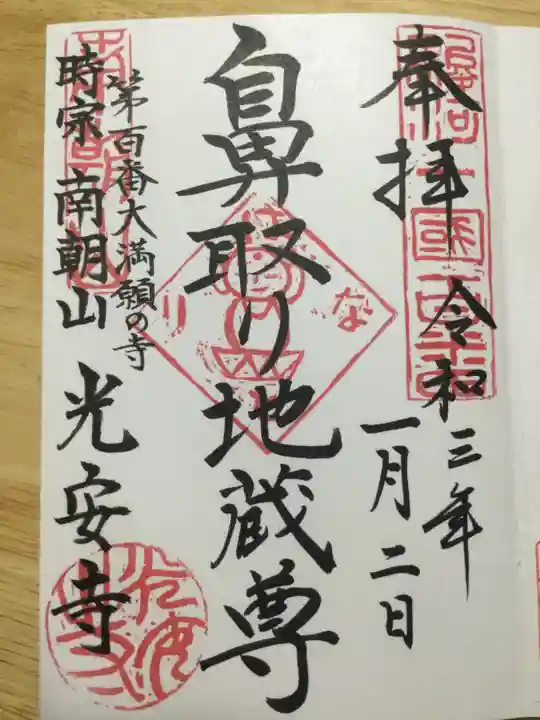 奉拝 令和三年
一月二日
鼻取り地蔵尊
はなとり
第百番大満願の寺
時宗 南朝山 光安寺